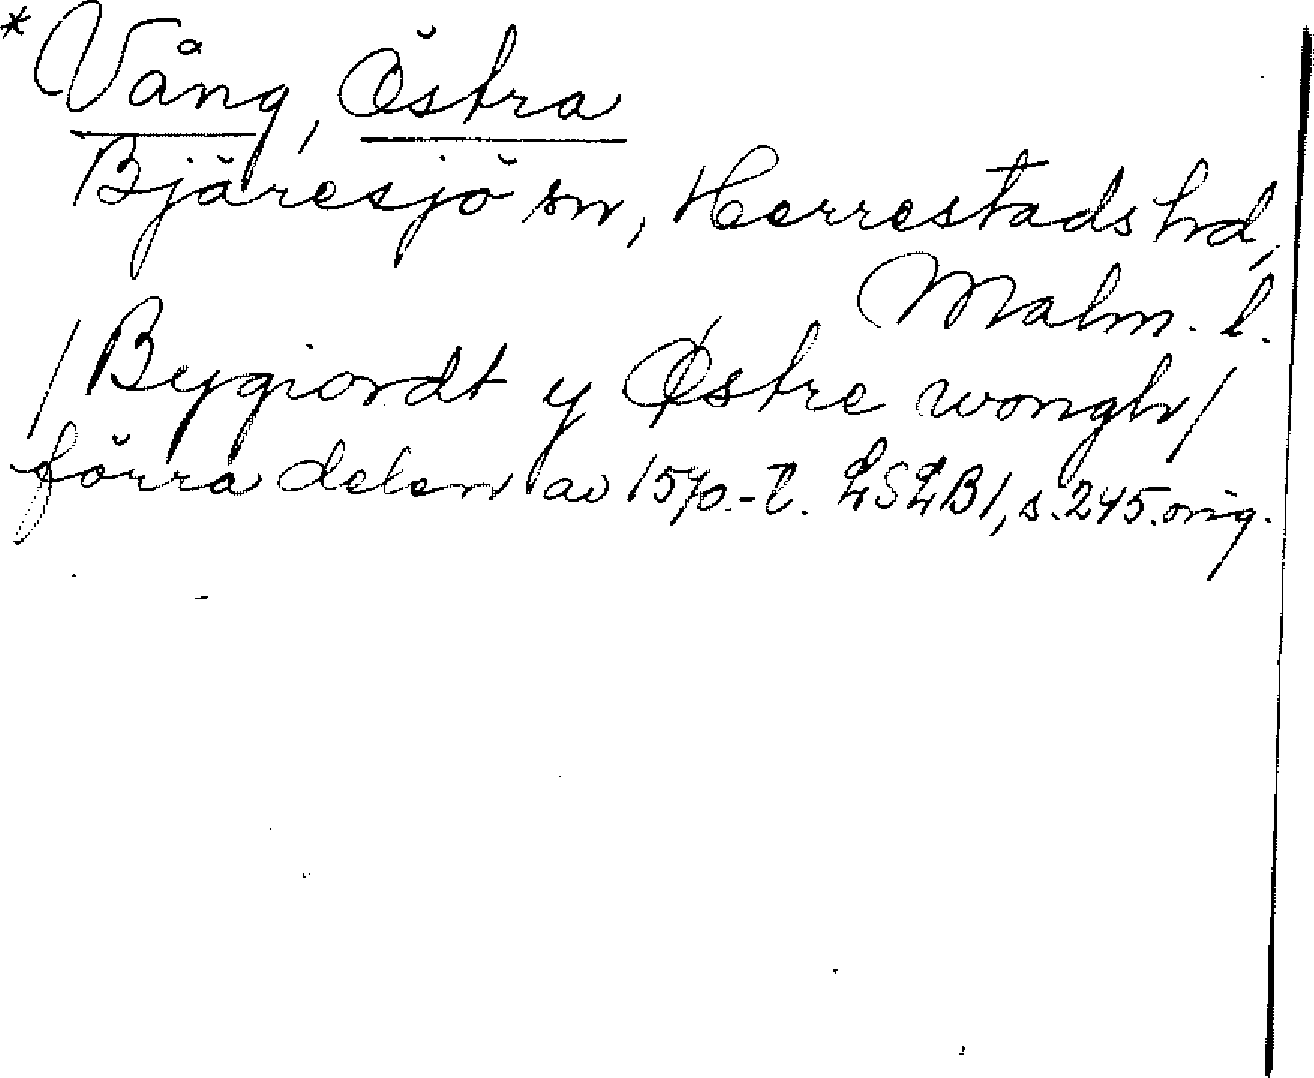 *Vång, Östra
Bjäresjö sn, Herrestads hd,
Malm. l.
/Bygiordt y Østre wongh/
förra delen av 1570.-t. LSLB1, s.245.orig.